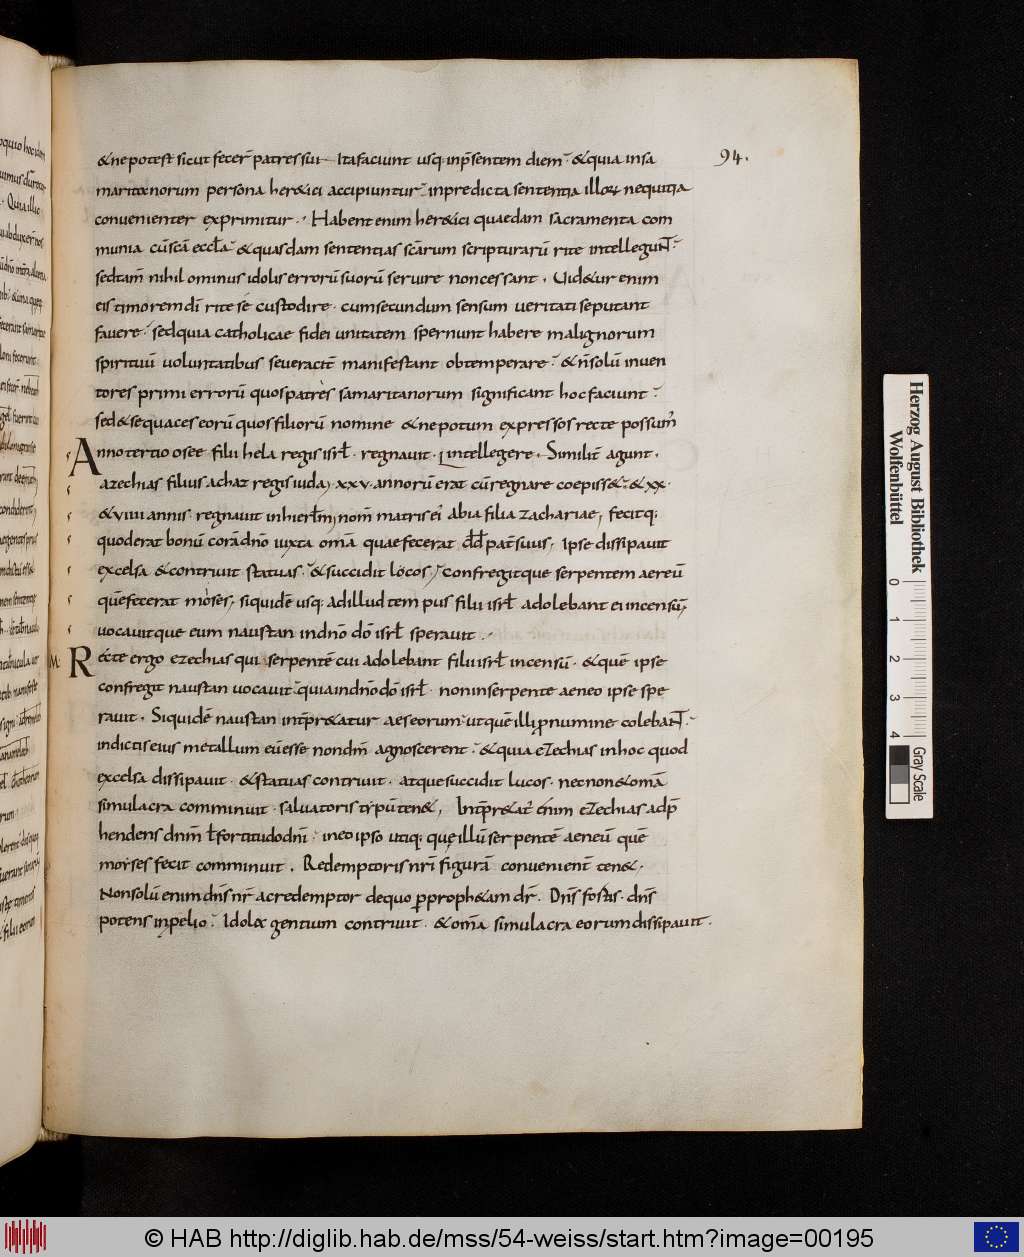 94.
&nepotest sicut fecer̄ patres sui Ita faciunt usq; inp̄sentem diem. & quia insa
maritanorum persona her&ici accipiuntur. inpredicta sententia illoꝝ nequitia
convenienter exprimitur. Habent enim her&ici quaedam sacramenta com
munia cū scā eccl̄a. & quasdam sententias scārum scripturarū rite intellegunt.
sedtam̄ nihilominus idolis errorū suorū servire non cessant. Uid&ur enim
eis timorem dī rite sē custodire. cum secundum sensum veritati se putant
favere. sed quia catholicae fidei unitatem spernunt habere malignorum
spirituū voluntatibus se veracit̄ manifestant obtemperare. & n̄ solū inven
tores primi errorū quos patres samaritanorum significant hoc faciunt.
sed & sequaces eorū quos filiorū nomine & nepotum expressos recte possum᾽
Anno tertio osee filii hela regis isrl̄. regnavit. Intellegere. Similit̄ agunt.
azechias filius achaz regis iuda, xxv. annorū erat cū regnare coepiss&. & xx.
& viiii annis. regnavit in hierl̄m, nom̄ matris ei᾽ abia filia zachariae, fecitq;
quod erat bonū corā dn̄o iuxta om̄a quae fecerat dd̄ pat̄ suus, Ipse dissipavit
excelsa & contrivit statuas. & succidit locos, confregitque serpentem aereū
quē fecerat moses, siquidē usq; ad illud tempus filii isrl̄ adolebant ei incensū,
vocavitque eum naustan in dn̄o dō isrl̄ speravit.
M. Recte ergo ezechias qui serpentē cui adolebant filii isrl̄ incensū. & quē ipse
confregit naustan vocavit. quia in dn̄o dō isrl̄. non in serpente aeneo ipse spe
ravit. Siquidē naustan int̄pr&atur aes eorum. ut quē illi pro numine colebant.
indictis eius metallum eū esse non dm̄ agnoscerent. & quia eZechias in hoc quod
excelsa dissipavit. & statuas contrivit. atque succidit lucos. necnon & om̄a
simulacra comminuit. salvatoris typū ten&, Int̄pr&at᾽ enim eZechias adp̄
hendens dn̄m l̄ fortitudo dn̄i. in eo ipso utiq; quę illū serpentē aeneū quē
moyses fecit comminuit. Redemptoris nr̄i figurā convenient̄ ten&.
Non solū enim dn̄s nr̄ ac redemptor de quo p prophetam dr̄. Dn̄s fortis. dn̄s
potens in p̄elio. Idola gentium contrivit. & om̄a simulacra eorum dissipavit.
Herzog August Bibliothek
Wolfenbüttel
0 1 2 3 4
Gray Scale
© HAB http://diglib.hab.de/mss/54-weiss/start.htm?image=00195